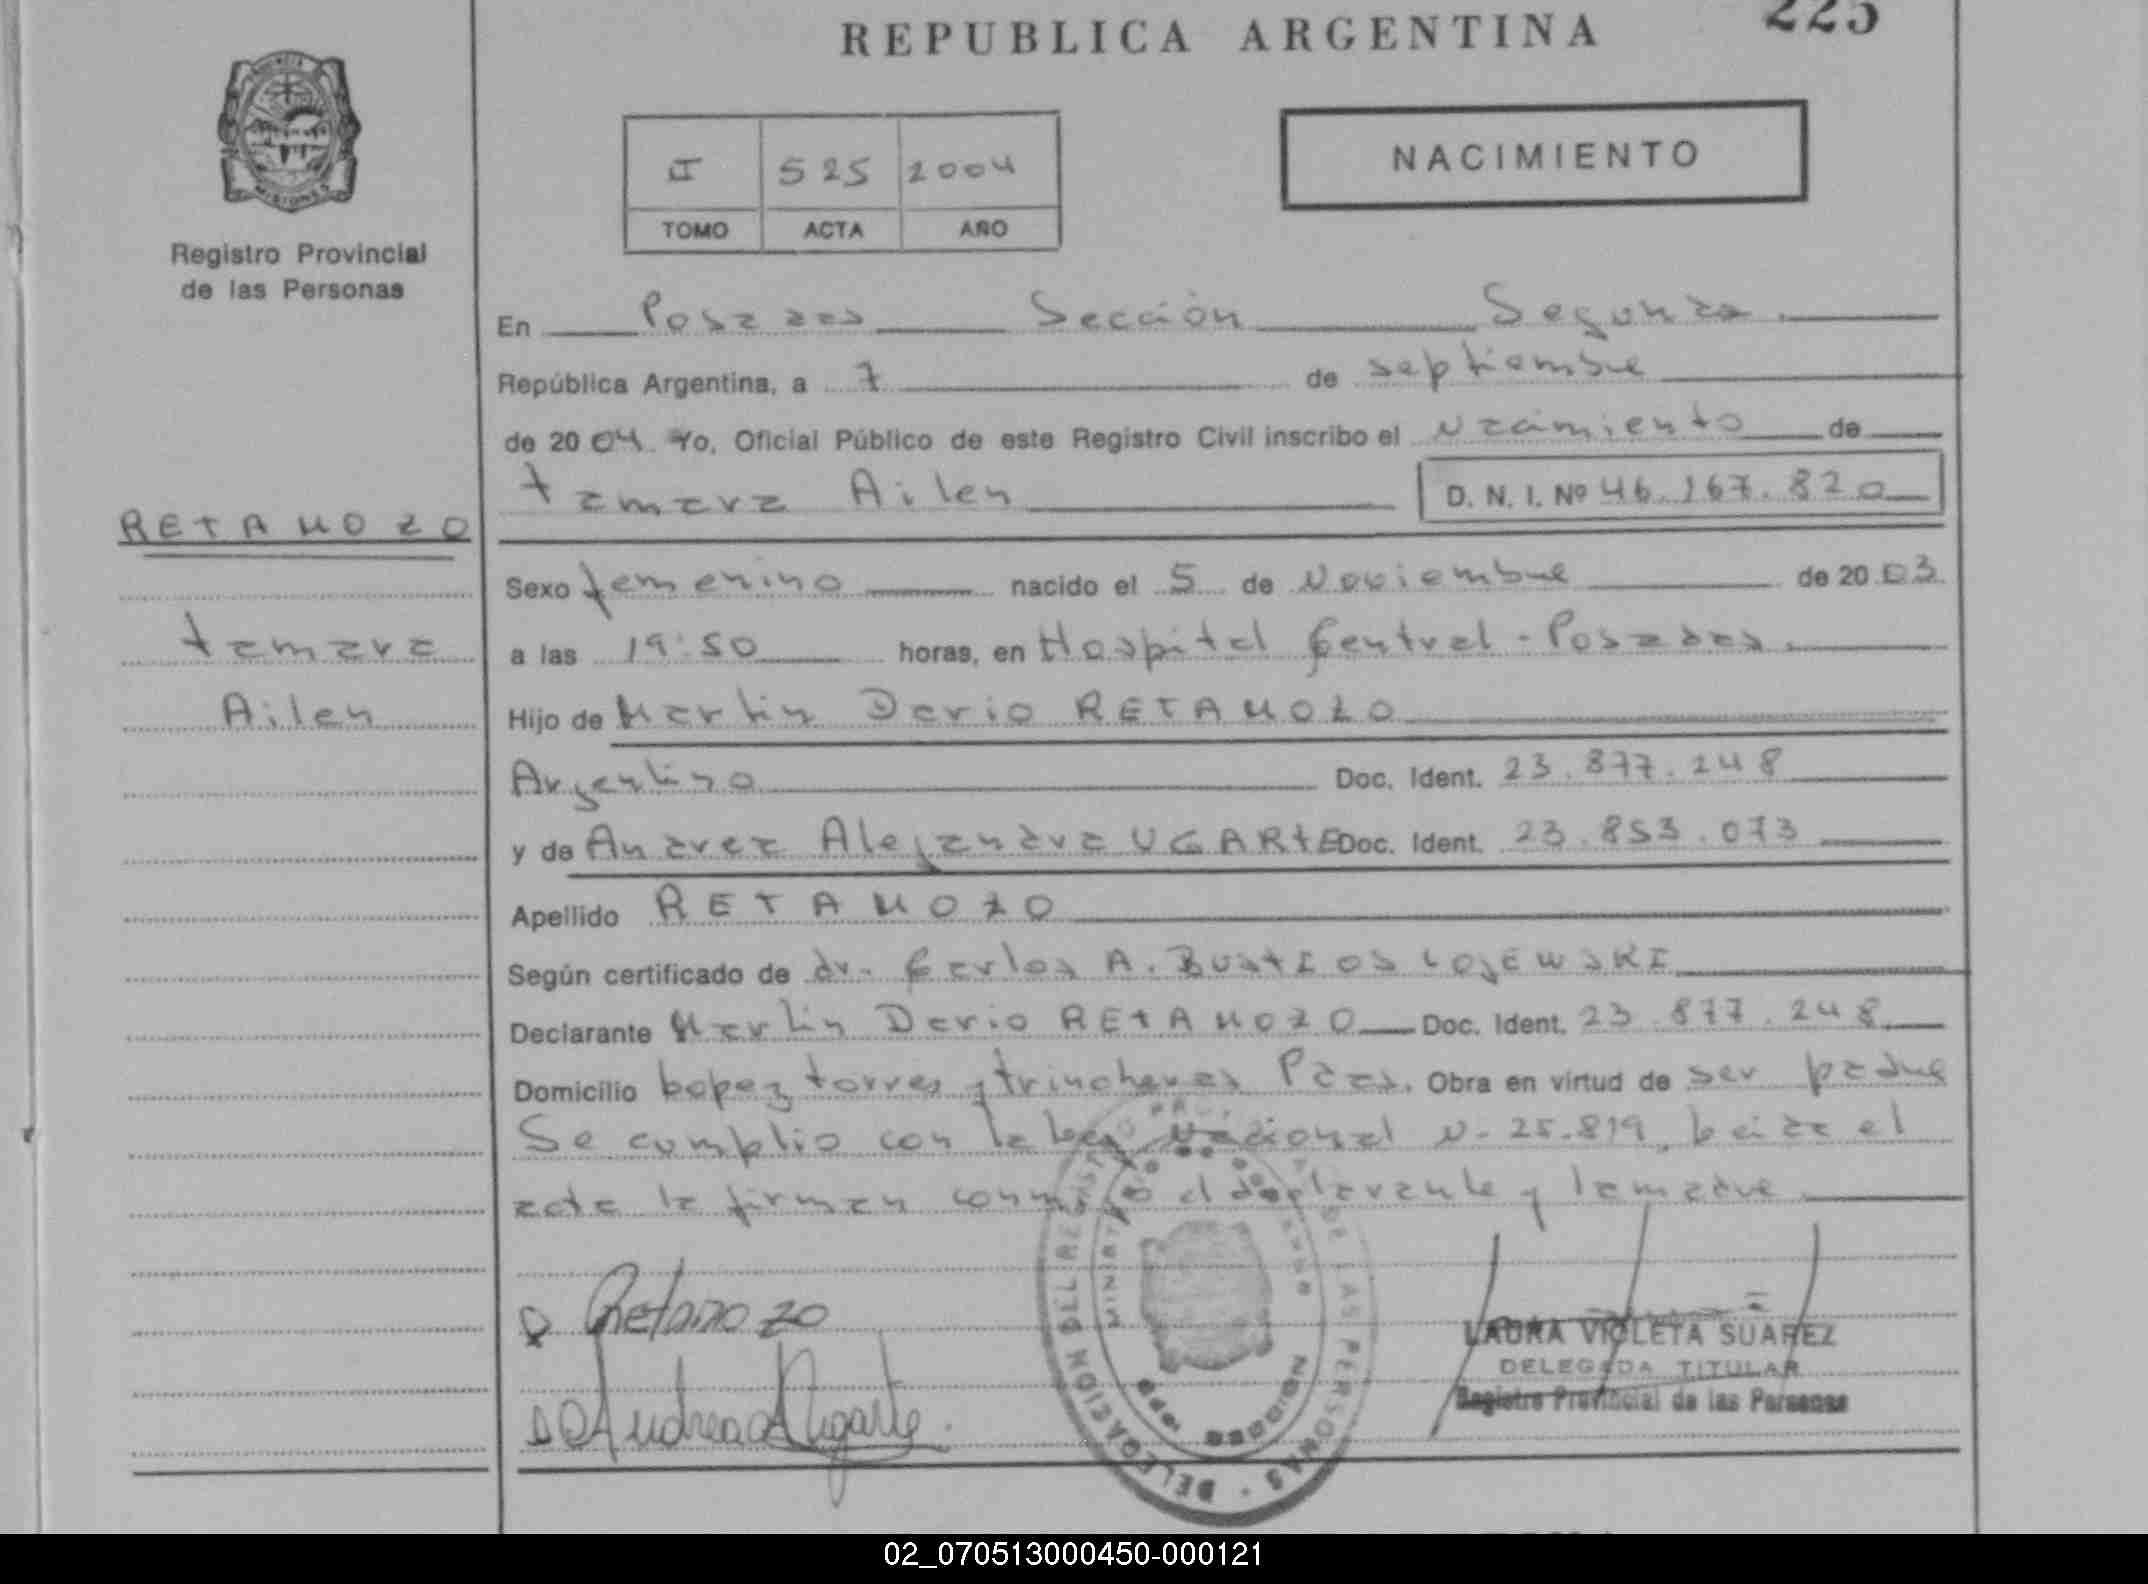 REPUBLICA ARGENTINA
225
PROVINCIA
MISIONES
Registro Provincial
de las Personas
I 525 2004
TOMO ACTA AÑO
NACIMIENTO
En Posadas Sección Segunda.
República Argentina, a 7 de septiembre
de 2004. Yo, Oficial Público de este Registro Civil inscribo el Nacimiento de
tamara Ailen D. N. I. Nº 46.167.820
RETAMOZO
tamara
Ailen
Sexo femenino nacido el 5 de Noviembre de 2003.
a las 19:50 horas, en Hospital Central - Posadas.
Hijo de Martin Dario RETAMOZO
Argentino Doc. Ident. 23.877.248
y de Andrea Alejandra UGARtE Doc. Ident. 23.853.073
Apellido RETAMOZO
Según certificado de dr. Carlos A. BUStIOS LOJEWSKI
Declarante Martin Dario REtAMOZO Doc. Ident. 23.877.248
Domicilio Lopez torres y trincheras Pdas. Obra en virtud de ser padre
Se cumplio con la Ley Nacional N- 25.819, Leida el
acta la firman conmigo el declarante y la madre
Retamozo
Andrea A Ugarte.
DELEGACION DEL REGISTRO DE LAS PERSONAS
LAURA VIOLETA SUAREZ
DELEGADA TITULAR
Registro Provincial de las Personas
02_070513000450-000121